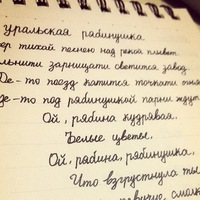 уральская рябинушка
ер тихой песнею над рекой плывет.
льними зарницами светится завод,
Где-то поезд катится точками огня
де-то под рябинушкой парни ждут
Ой, рябина кудрявая,
Белые цветы,
Ой, рябина, рябинушка,
Что взгрустнула ты